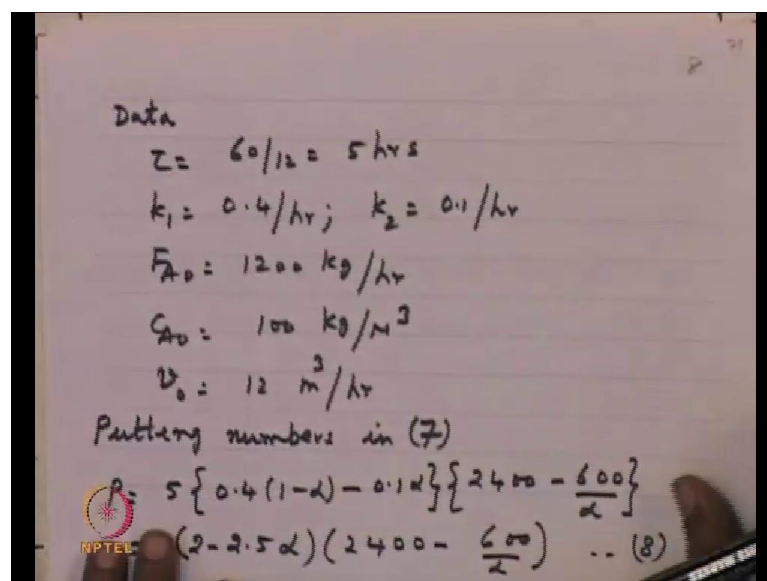 8 71
Data
τ = 60/12 = 5 hrs
k₁ = 0.4/hr; k₂ = 0.1/hr
F_A0 = 1200 kg/hr
C_A0 = 100 kg/M³
v₀ = 12 m³/hr
Putting numbers in (7)
P = 5{0.4(1-α) - 0.1α}{2400 - 600/α}
(2-2.5α)(2400 - 600/α) .. (8)
NPTEL